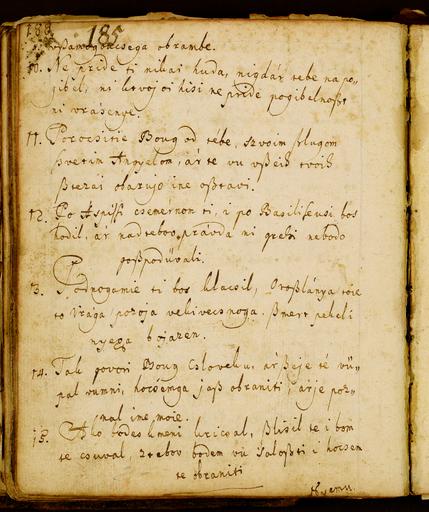 188.
185
obrambe.
10. Ne pride ti nikai huda, nigdár tebe na po-
gibel, ni k tvojoi hisi ne pride pogibelnoßt
ni vrasenye.
11. Porocsitie Boug od tébe, szvoim ßlugom
svetim Angyelom, ár te vu vßeih tvoih
ßtezai obarujo ine oßtavi.
12. Po Aspißi csemernom ti, i po Basilißkusi bos
hodil, ár nad tebov právda ni grehi nebodo
goßpodüvali.
13. Podnogamie ti bos klacsil, Oroßlánya
to vrága, pozoja velivecsnoga. ßmert pekeli
nyega bojazen.
14. Tak govori Boug Csloveku, ár ßeje té vü-
pal vumni, hocsenga jaß obraniti, ár je poz-
nal ime moie.
15. Ako bodes kmeni kricsal, ßlisil te i bom
te csuval, ztebov bodem vu 'saloßti i hocsem
te obraniti